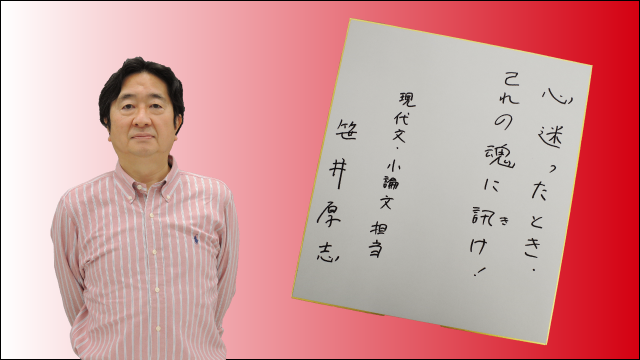 心迷ったとき、
己れの魂に訊け！
き
現代文・小論文 担当
笹井厚志